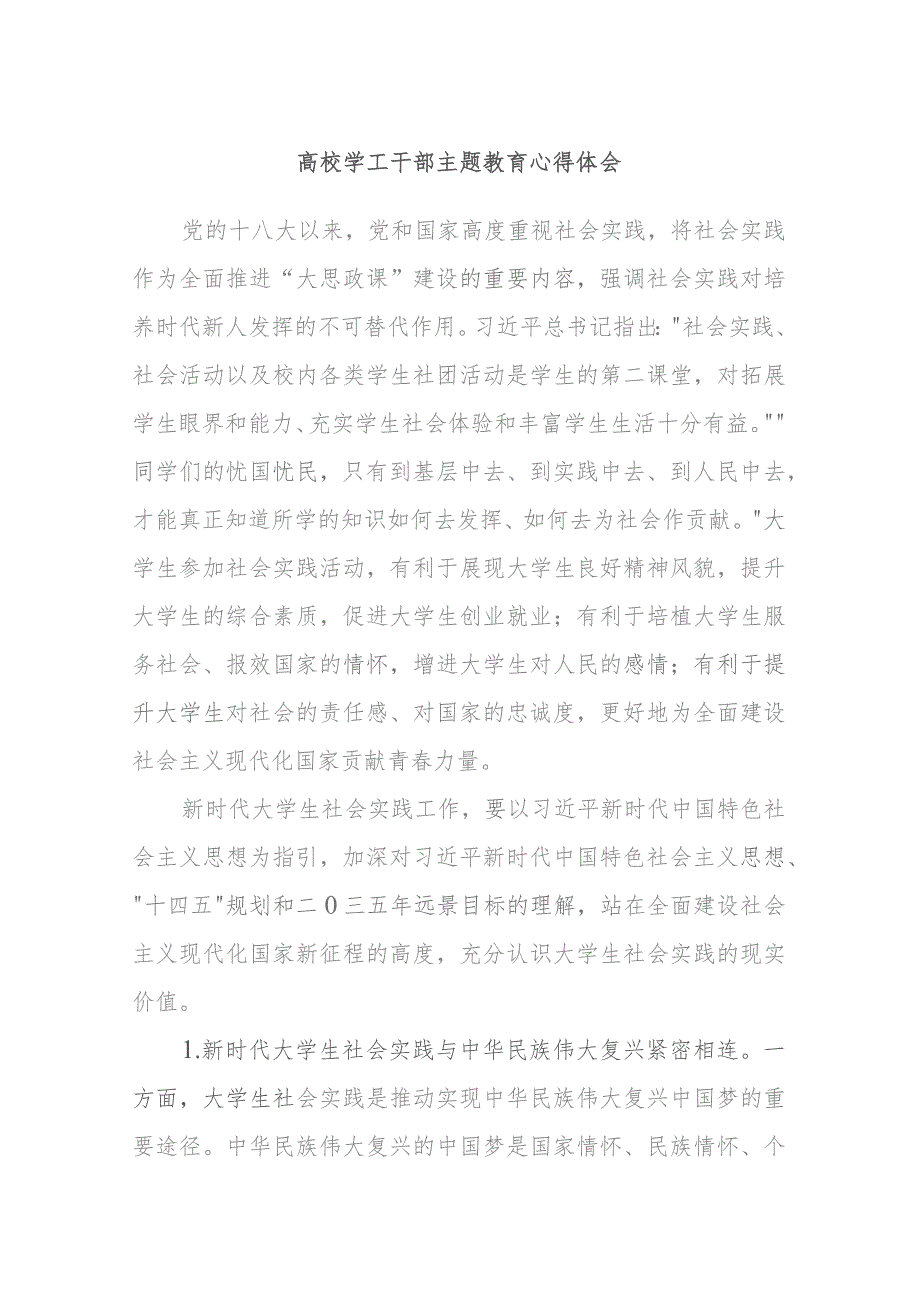 高校学工干部主题教育心得体会
党的十八大以来，党和国家高度重视社会实践，将社会实践
作为全面推进“大思政课”建设的重要内容，强调社会实践对培
养时代新人发挥的不可替代作用。习近平总书记指出："社会实践、
社会活动以及校内各类学生社团活动是学生的第二课堂，对拓展
学生眼界和能力、充实学生社会体验和丰富学生生活十分有益。""
同学们的忧国忧民，只有到基层中去、到实践中去、到人民中去，
才能真正知道所学的知识如何去发挥、如何去为社会作贡献。"大
学生参加社会实践活动，有利于展现大学生良好精神风貌，提升
大学生的综合素质，促进大学生创业就业；有利于培植大学生服
务社会、报效国家的情怀，增进大学生对人民的感情；有利于提
升大学生对社会的责任感、对国家的忠诚度，更好地为全面建设
社会主义现代化国家贡献青春力量。
新时代大学生社会实践工作，要以习近平新时代中国特色社
会主义思想为指引，加深对习近平新时代中国特色社会主义思想、
"十四五"规划和二0三五年远景目标的理解，站在全面建设社会
主义现代化国家新征程的高度，充分认识大学生社会实践的现实
价值。
1.新时代大学生社会实践与中华民族伟大复兴紧密相连。一
方面，大学生社会实践是推动实现中华民族伟大复兴中国梦的重
要途径。中华民族伟大复兴的中国梦是国家情怀、民族情怀、个